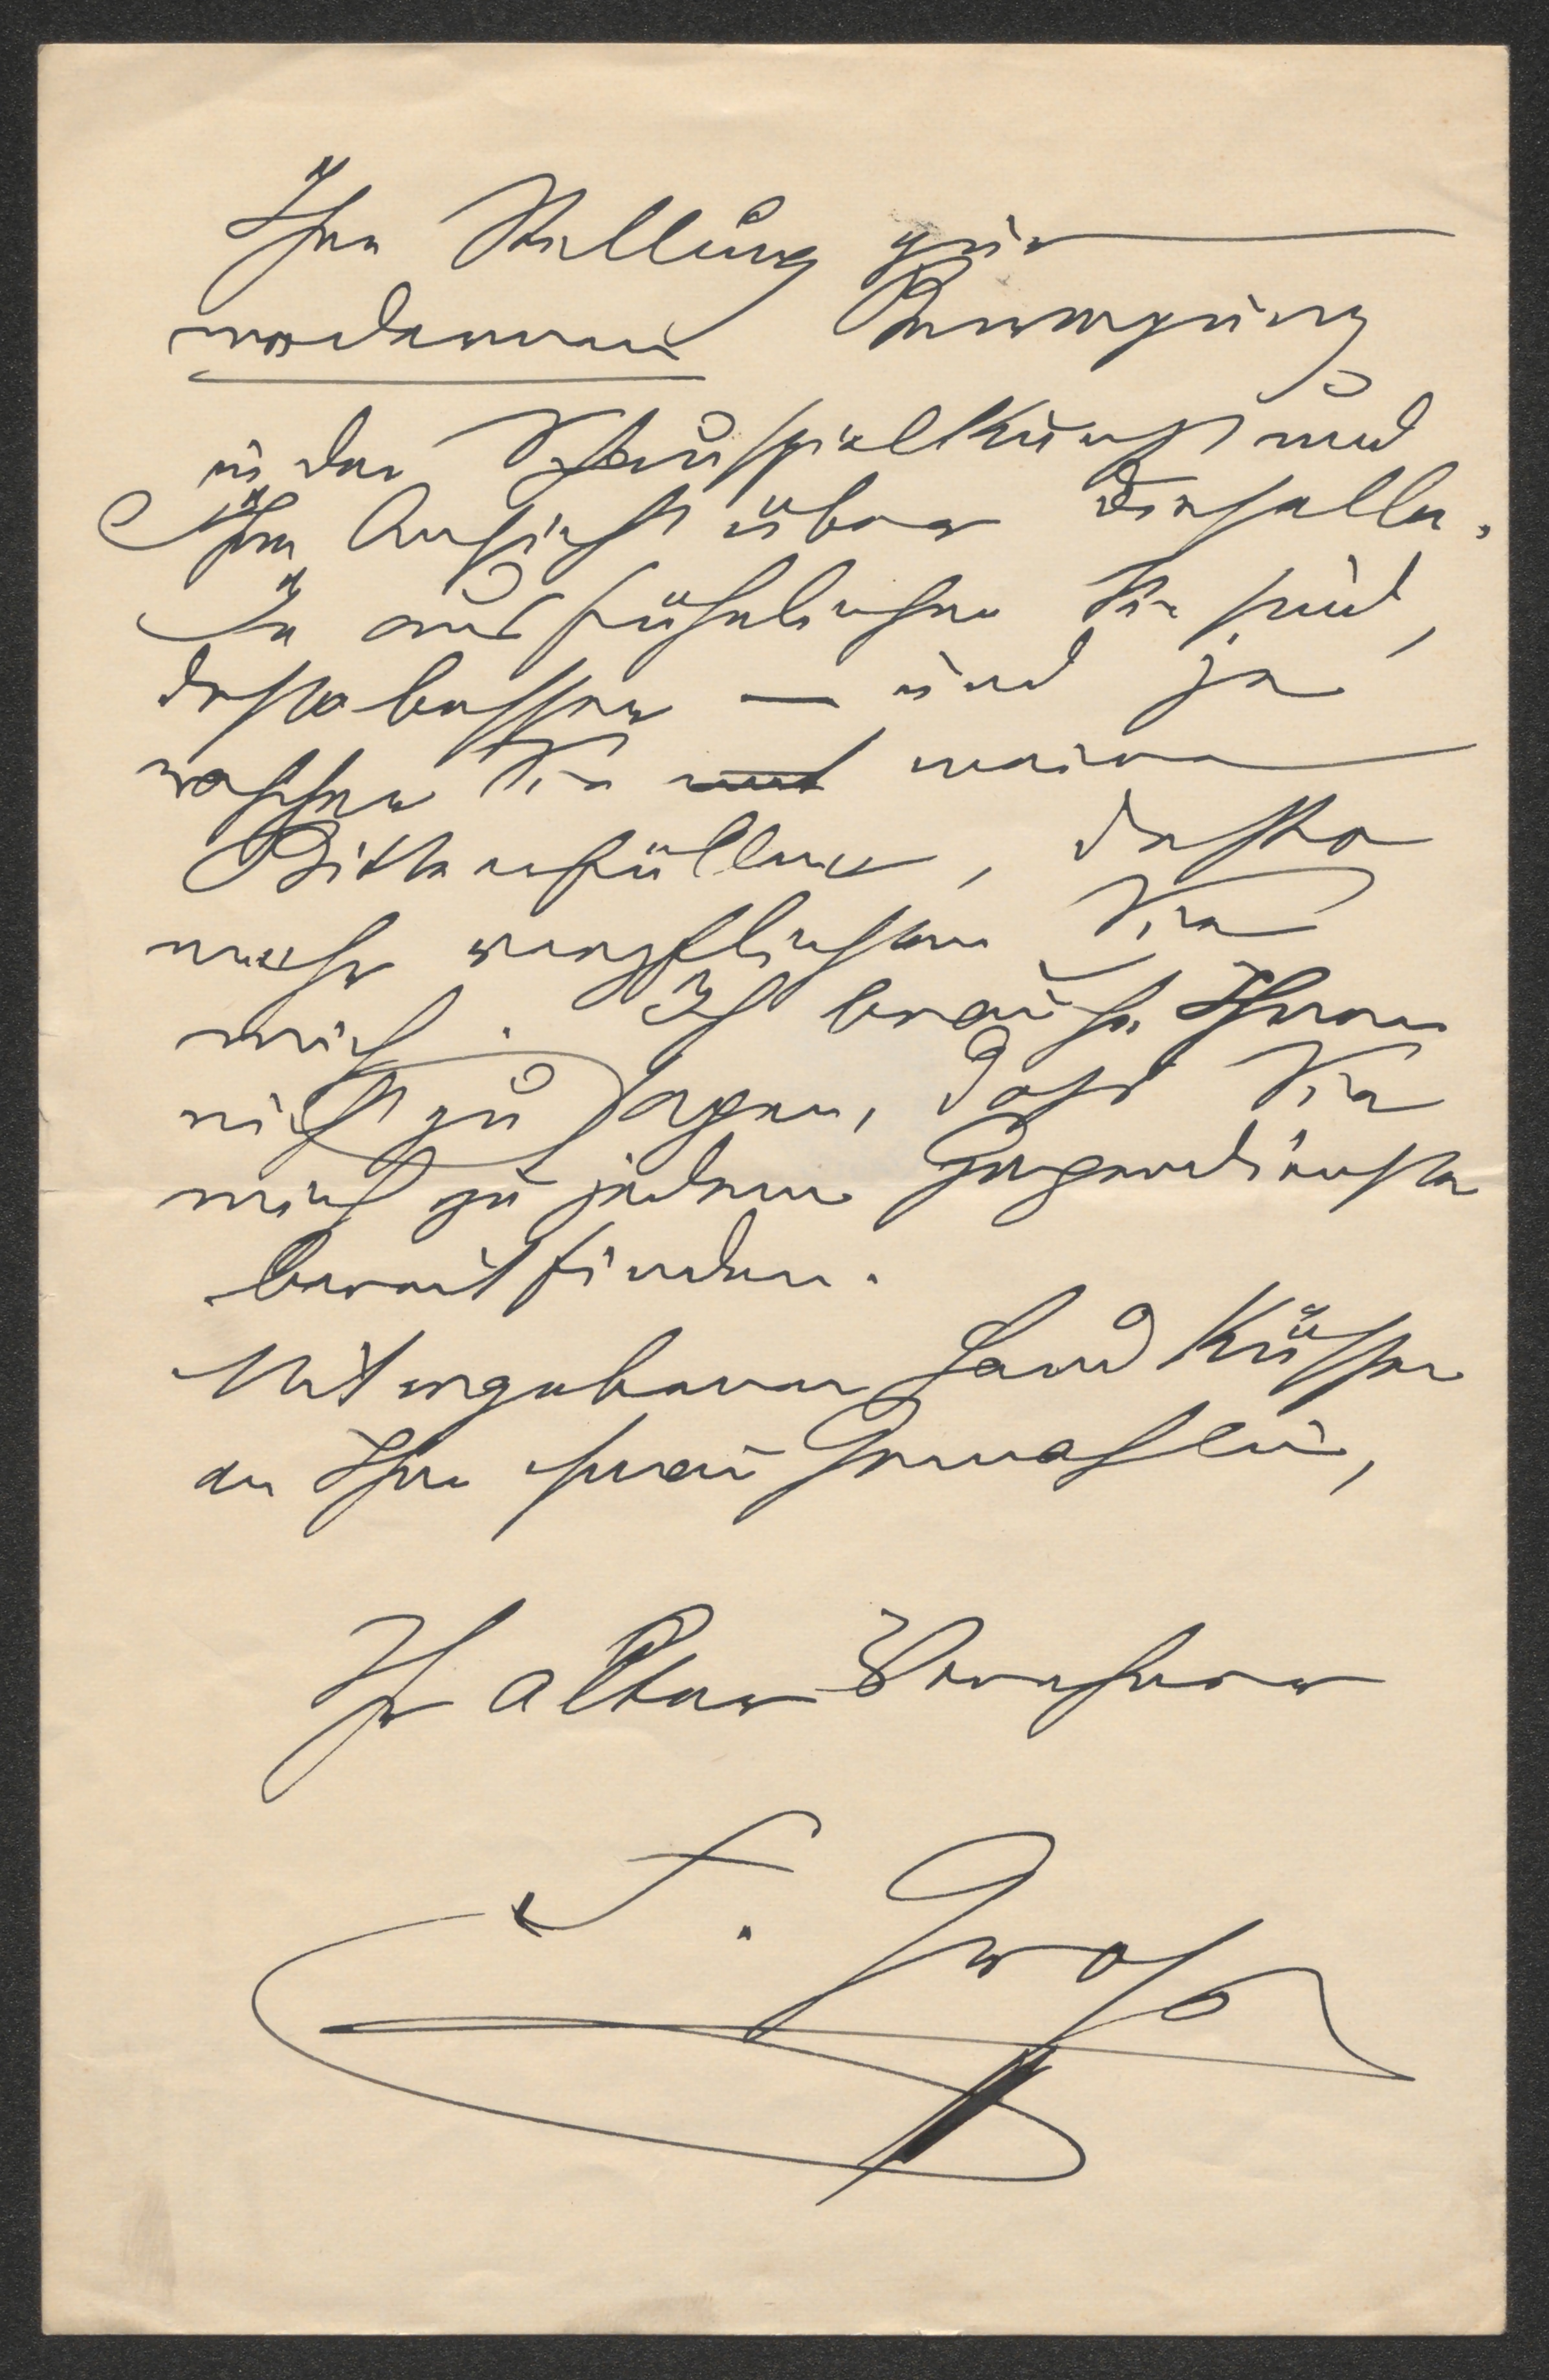 Ihre Stellung zur
modernen Bewegung
in der Schauspielkunst und
Ihre Ansicht über dieselbe.
Je ausführlicher Sie sind,
desto besser — und je
rascher Sie meine
Bitte erfüllen, desto
mehr verpflichten Sie
mich. Ich brauche Ihnen
nicht zu sagen, dass Sie
mich zu jedem Gegendienste
bereit finden.
Mit ergebenen Handküssen
an Ihre Frau Gemahlin,
Ihr alter Verehrer
F. Gross